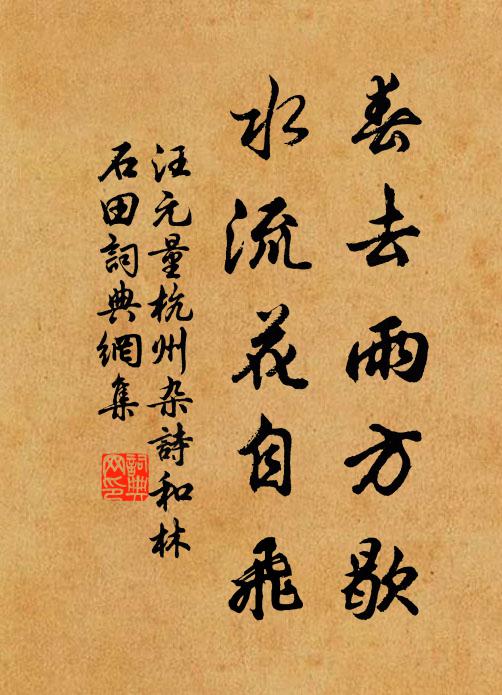 春去雨方歇
水流花自飛
汪元量杭州杂詩和林
石田詞典網集
詞典
网印